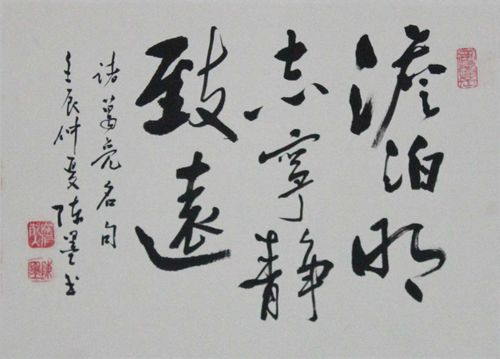 澹泊明
志寧静
致遠
诸葛亮名句
壬辰仲夏陈墨书